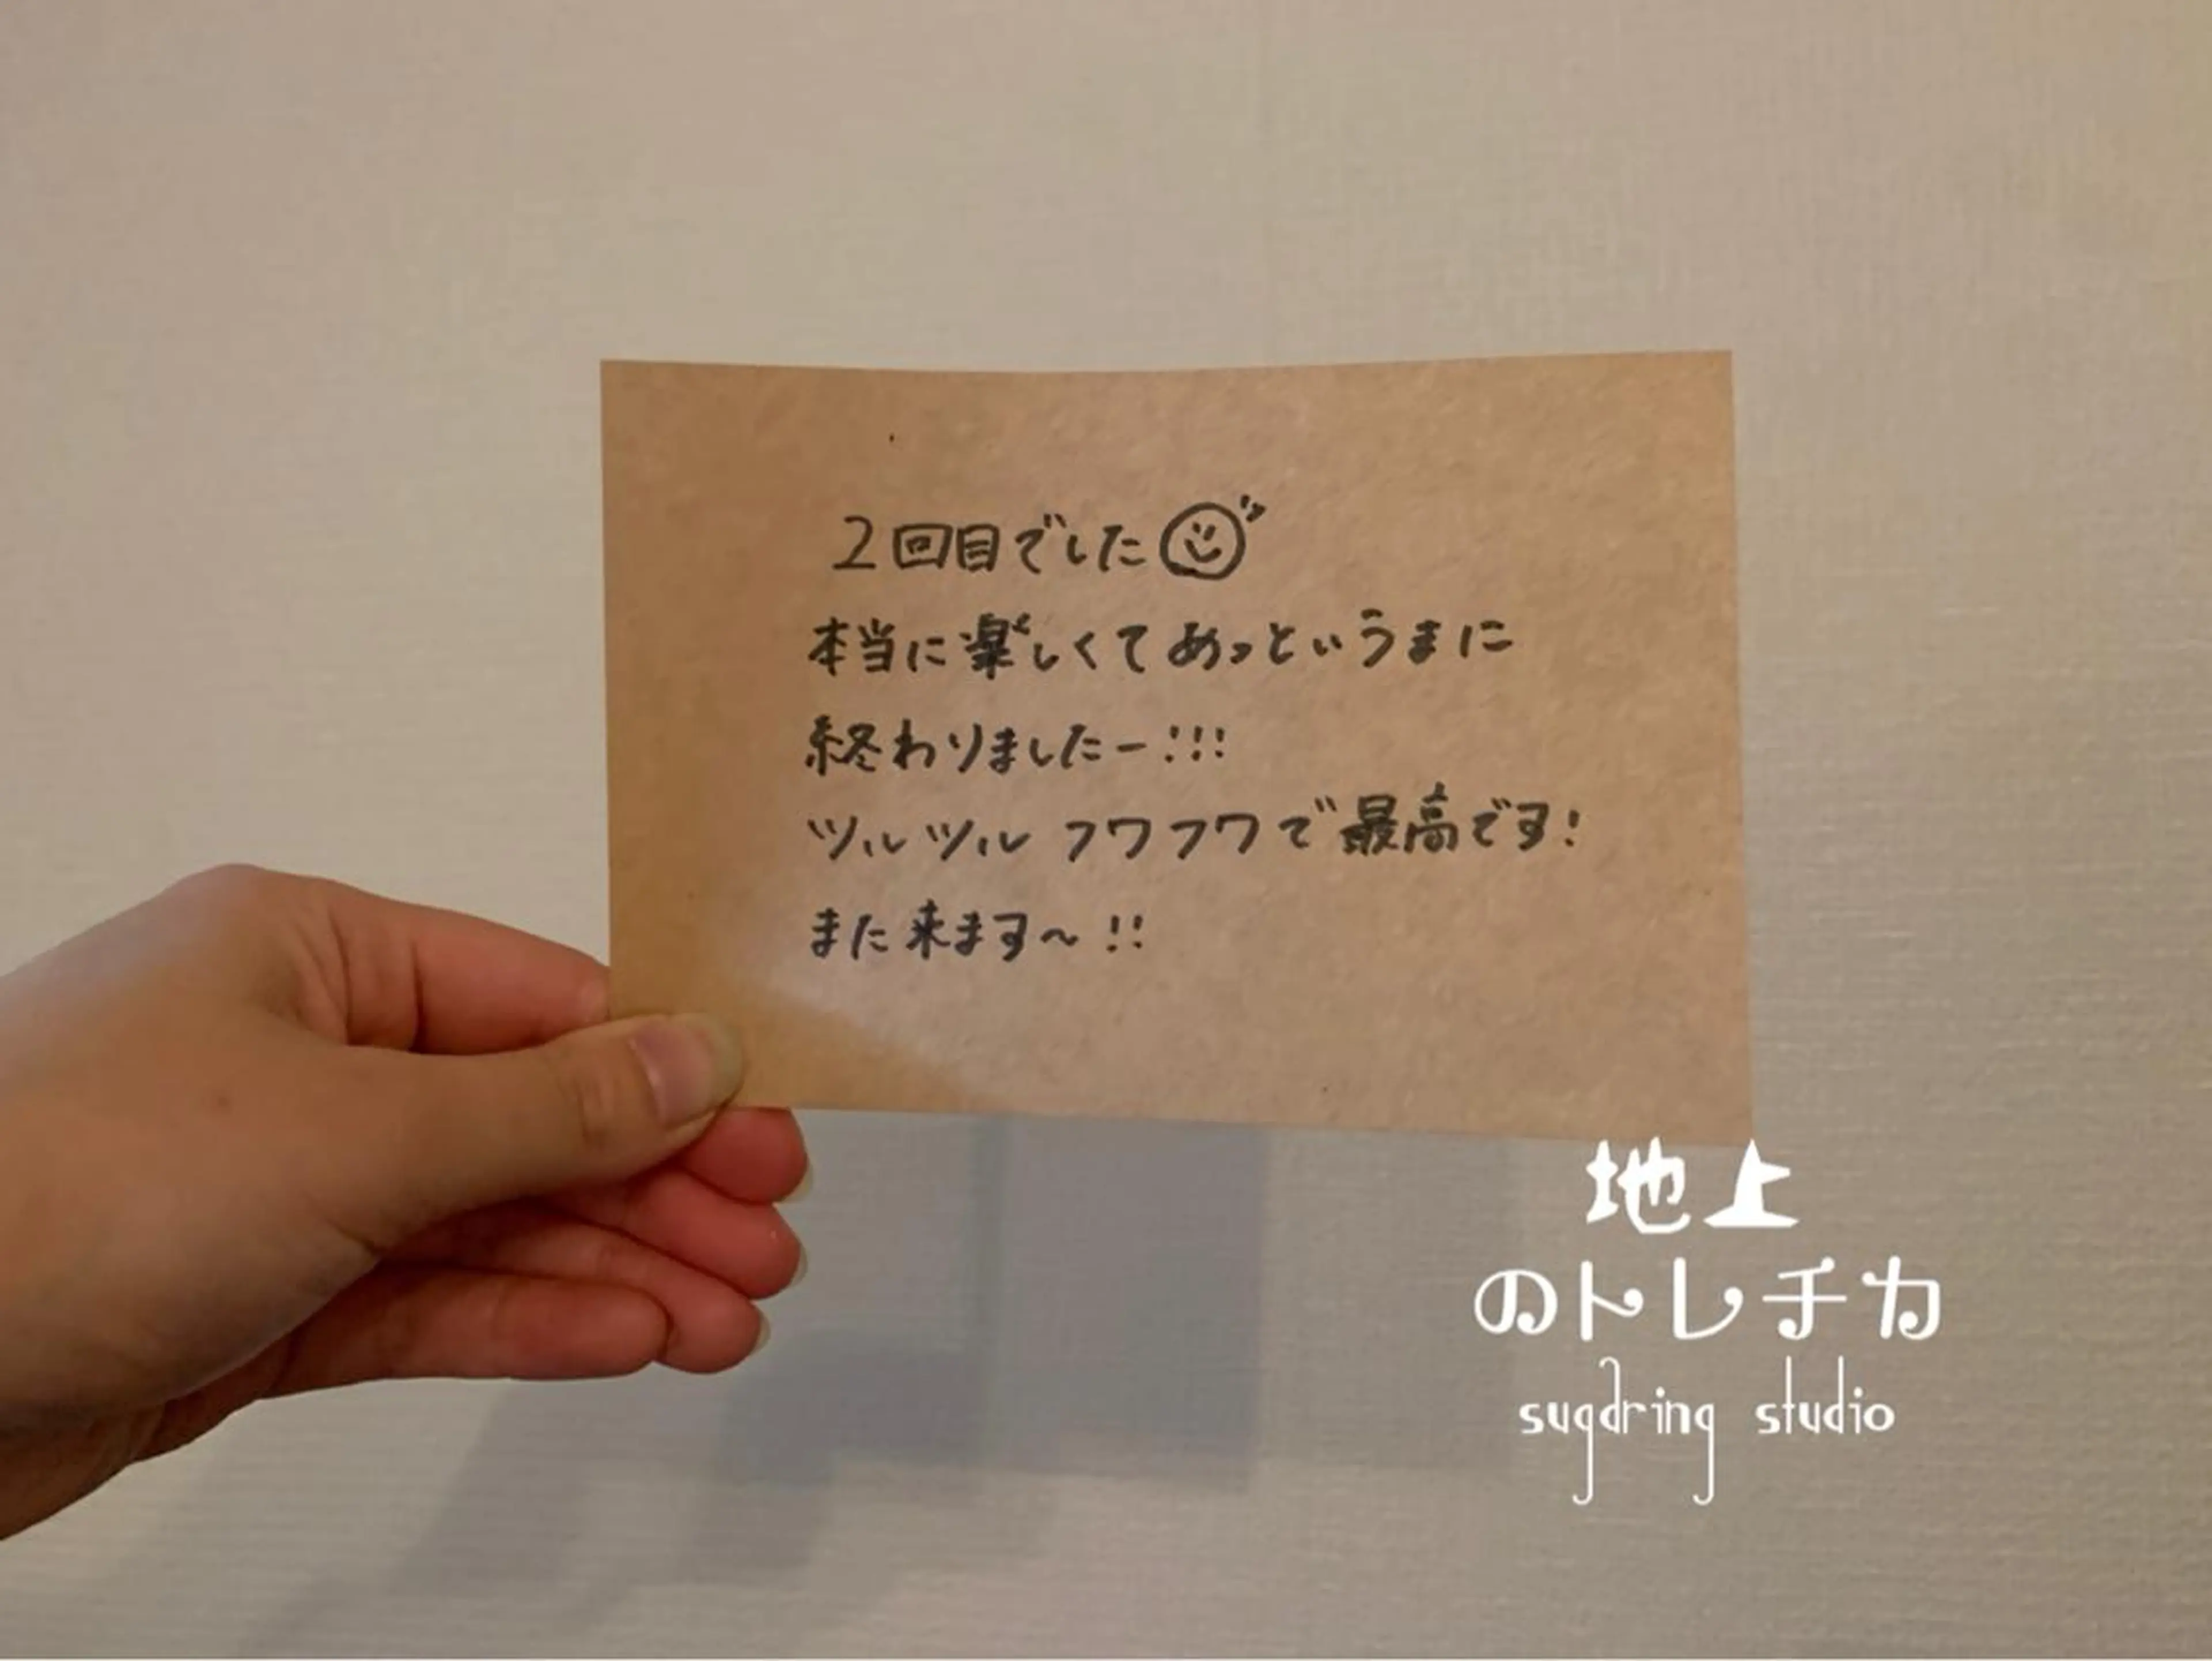 2回目でした
本当に楽しくてあっというまに
終わりましたー!!!
ツルツルフワフワで最高です!
また来ます〜!!
地上
のトレチカ
sugaring studio